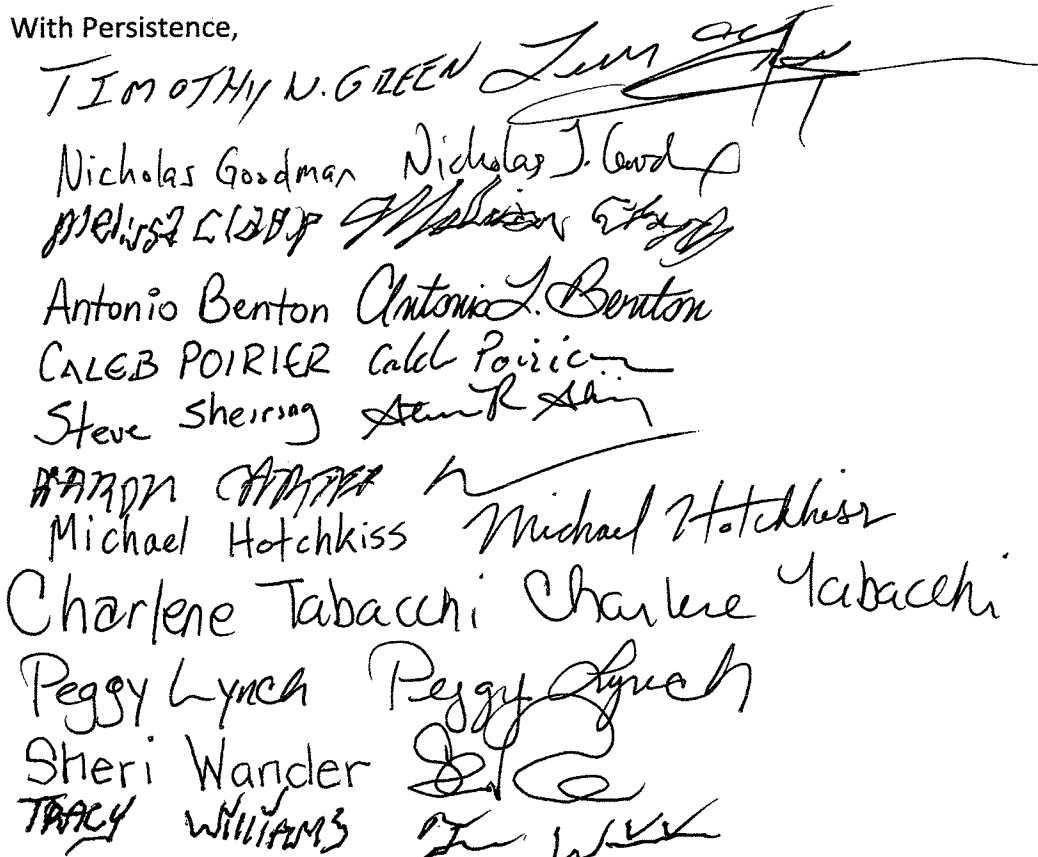 With Persistence,
TIMOTHY N. GREEN
Nicholas Goodman Nicholas J.
Melissa
Antonio Benton Antonio L. Benton
CALEB POIRIER Caleb Poirier
Steve Sheiring
AARON CARTER
Michael Hotchkiss Michael Hotchkiss
Charlene Tabacchi Charlene Tabacchi
Peggy Lynch Peggy Lynch
Sheri Wander
TRACY WILLIAMS